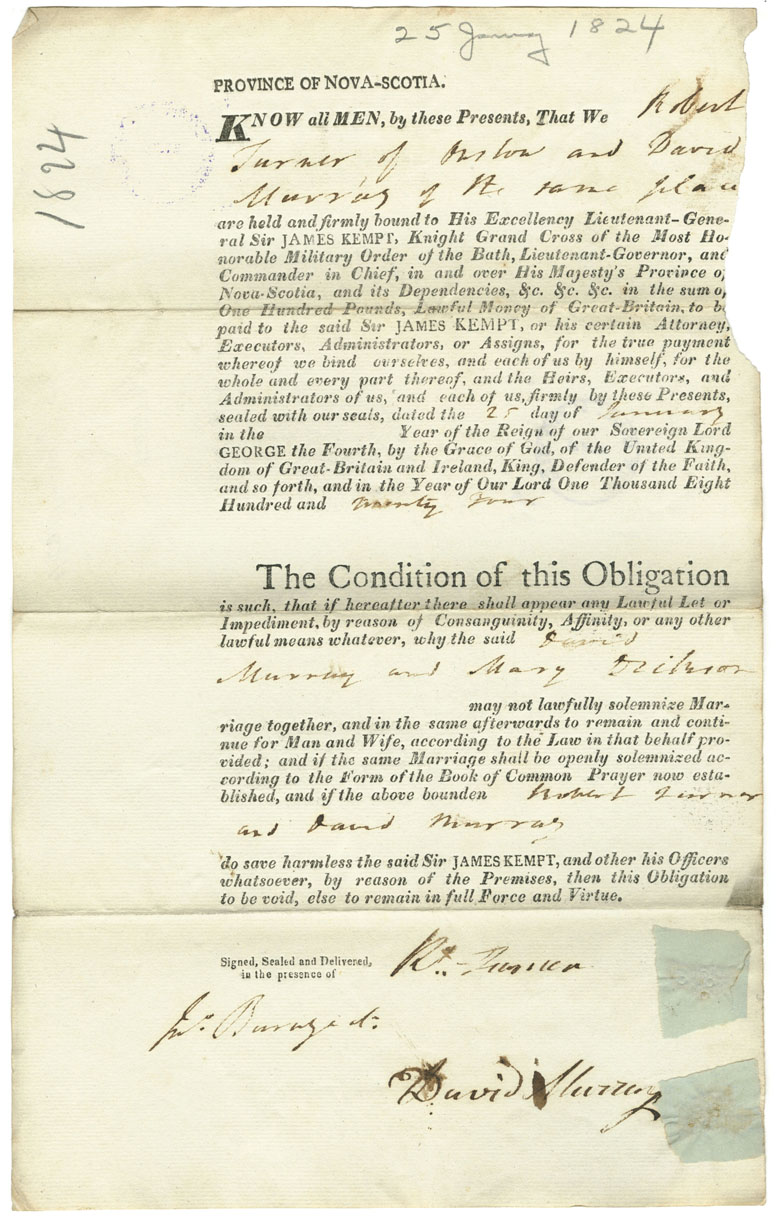 25 January 1824
1824
PROVINCE OF NOVA-SCOTIA.
KNOW all MEN, by these Presents, That We Robert
Turner of Onslow and David
Murray of the same place
are held and firmly bound to His Excellency Lieutenant-Gene-
ral Sir JAMES KEMPT, Knight Grand Cross of the Most Ho-
norable Military Order of the Bath, Lieutenant-Governor, and
Commander in Chief, in and over His Majesty's Province o
Nova-Scotia, and its Dependencies, &c. &c. &c. in the sum o
One Hundred Pounds, Lawful Money of Great-Britain, to be
paid to the said Sir JAMES KEMPT, or his certain Attorney,
Executors, Administrators, or Assigns, for the true payment
whereof we bind ourselves, and each of us by himself, for the
whole and every part thereof, and the Heirs, Executors, and
Administrators of us, and each of us, firmly by these Presents,
sealed with our seals, dated the 25 day of January
in the Year of the Reign of our Sovereign Lord
GEORGE the Fourth, by the Grace of God, of the United King-
dom of Great-Britain and Ireland, King, Defender of the Faith,
and so forth, and in the Year of Our Lord One Thousand Eight
Hundred and twenty four
The Condition of this Obligation
is such, that if hereafter there shall appear any Lawful Let or
Impediment, by reason of Consanguinity, Affinity, or any other
lawful means whatever, why the said David
Murray and Mary Dickson
may not lawfully solemnize Mar-
riage together, and in the same afterwards to remain and conti-
nue for Man and Wife, according to the Law in that behalf pro-
vided; and if the same Marriage shall be openly solemnized ac-
cording to the Form of the Book of Common Prayer now esta-
blished, and if the above bounden Robert Turner
and David Murray
do save harmless the said Sir JAMES KEMPT, and other his Officers
whatsoever, by reason of the Premises, then this Obligation
to be void, else to remain in full Force and Virtue.
Signed, Sealed and Delivered,
in the presence of
Rt. Turner
Jno.
David Murray